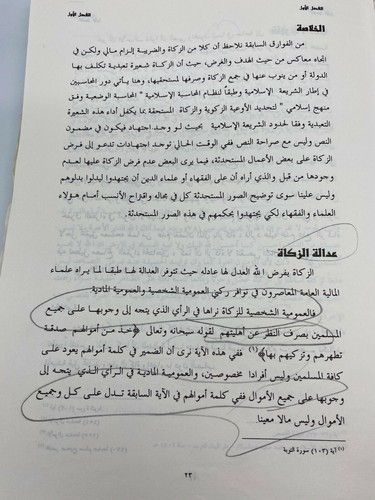 الفصل الأول
الخلاصة
من الفوارق السابقة نلاحظ أن كلا من الزكاة والضريبة إلزام مالي ولكن في
اتجاه معاكس من حيث الهدف والغرض، حيث أن الزكاة شعيرة تعبدية تكلف بها
الدولة أو من ينوب عنها في جمع الزكاة وصرفها لمستحقيها، وهنا يأتي دور المحاسبين
في إطار الشريعة الإسلامية وطبقاً لنظام المحاسبة الإسلامية " المحاسبة الوضعية وفق
منهج إسلامي " لتحديد الأوعية الزكوية والزكاة المستحقة بما يكفل أداء هذه الشعيرة
التعبدية وفقا لحدود الشريعة الإسلامية بحيث لو وجد اجتهاد فيكون في مضمون
النص وليس مع صراحة النص ففي الوقت الحالي توجد اجتهادات تدعو إلى فرض
الزكاة على بعض الأعمال المستحدثة، فيما يرى البعض عدم فرض الزكاة عليها لعدم
وجودها من قبل والذي أراه أن على الفقهاء أو علماء الدين أن يجتهدوا ليدلوا بدلوهم
وليس علينا سوى توضيح الصور المستحدثة كل في مجاله واقتراح الأنسب أمام هؤلاء
العلماء والفقهاء لكي يجتهدوا بحكمهم في هذه الصور المستحدثة.
عدالة الزكاة
الزكاة بفرض الله العدل لها عادله حيث تتوفر العدالة لها طبقا لما يراه علماء
المالية العامة المعاصرون في توافر ركني العمومية الشخصية والعمومية المادية
فالعمومية الشخصية للزكاة نراها في الرأي الذي يتجه إلى وجوبها على جميع
المسلمين بصرف النظر عن أهليتهم لقوله سبحانه وتعالى ﴿خذ من أموالهم صدقة
تطهرهم وتزكيهم بها﴾(١) ففي هذه الآية نرى أن الضمير في كلمة أموالهم يعود على
كافة المسلمين وليس أفرادا مخصوصين، والعمومية المادية في الرأي الذي يتجه إلى
وجوبها على جميع الأموال ففي كلمة أموالهم في الآية السابقة تدل على كل وجميع
الأموال وليس مالا معينا.
(١) آية (١٠٣) سورة التوبة
٢٣